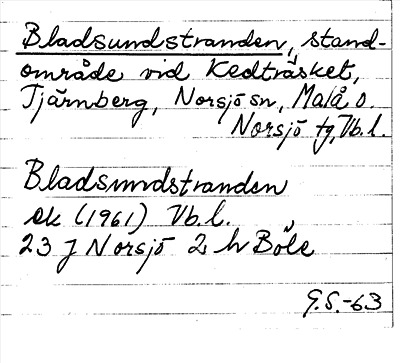 Bladsundstranden, stand-
område vid Kedträsket,
Tjärnberg, Norsjö sn, Malå o.
Norsjö tg, Vb. l.
Bladsundstranden
ek (1961) Vb. l.
23 J Norsjö 2 h Böle
G.S.-63